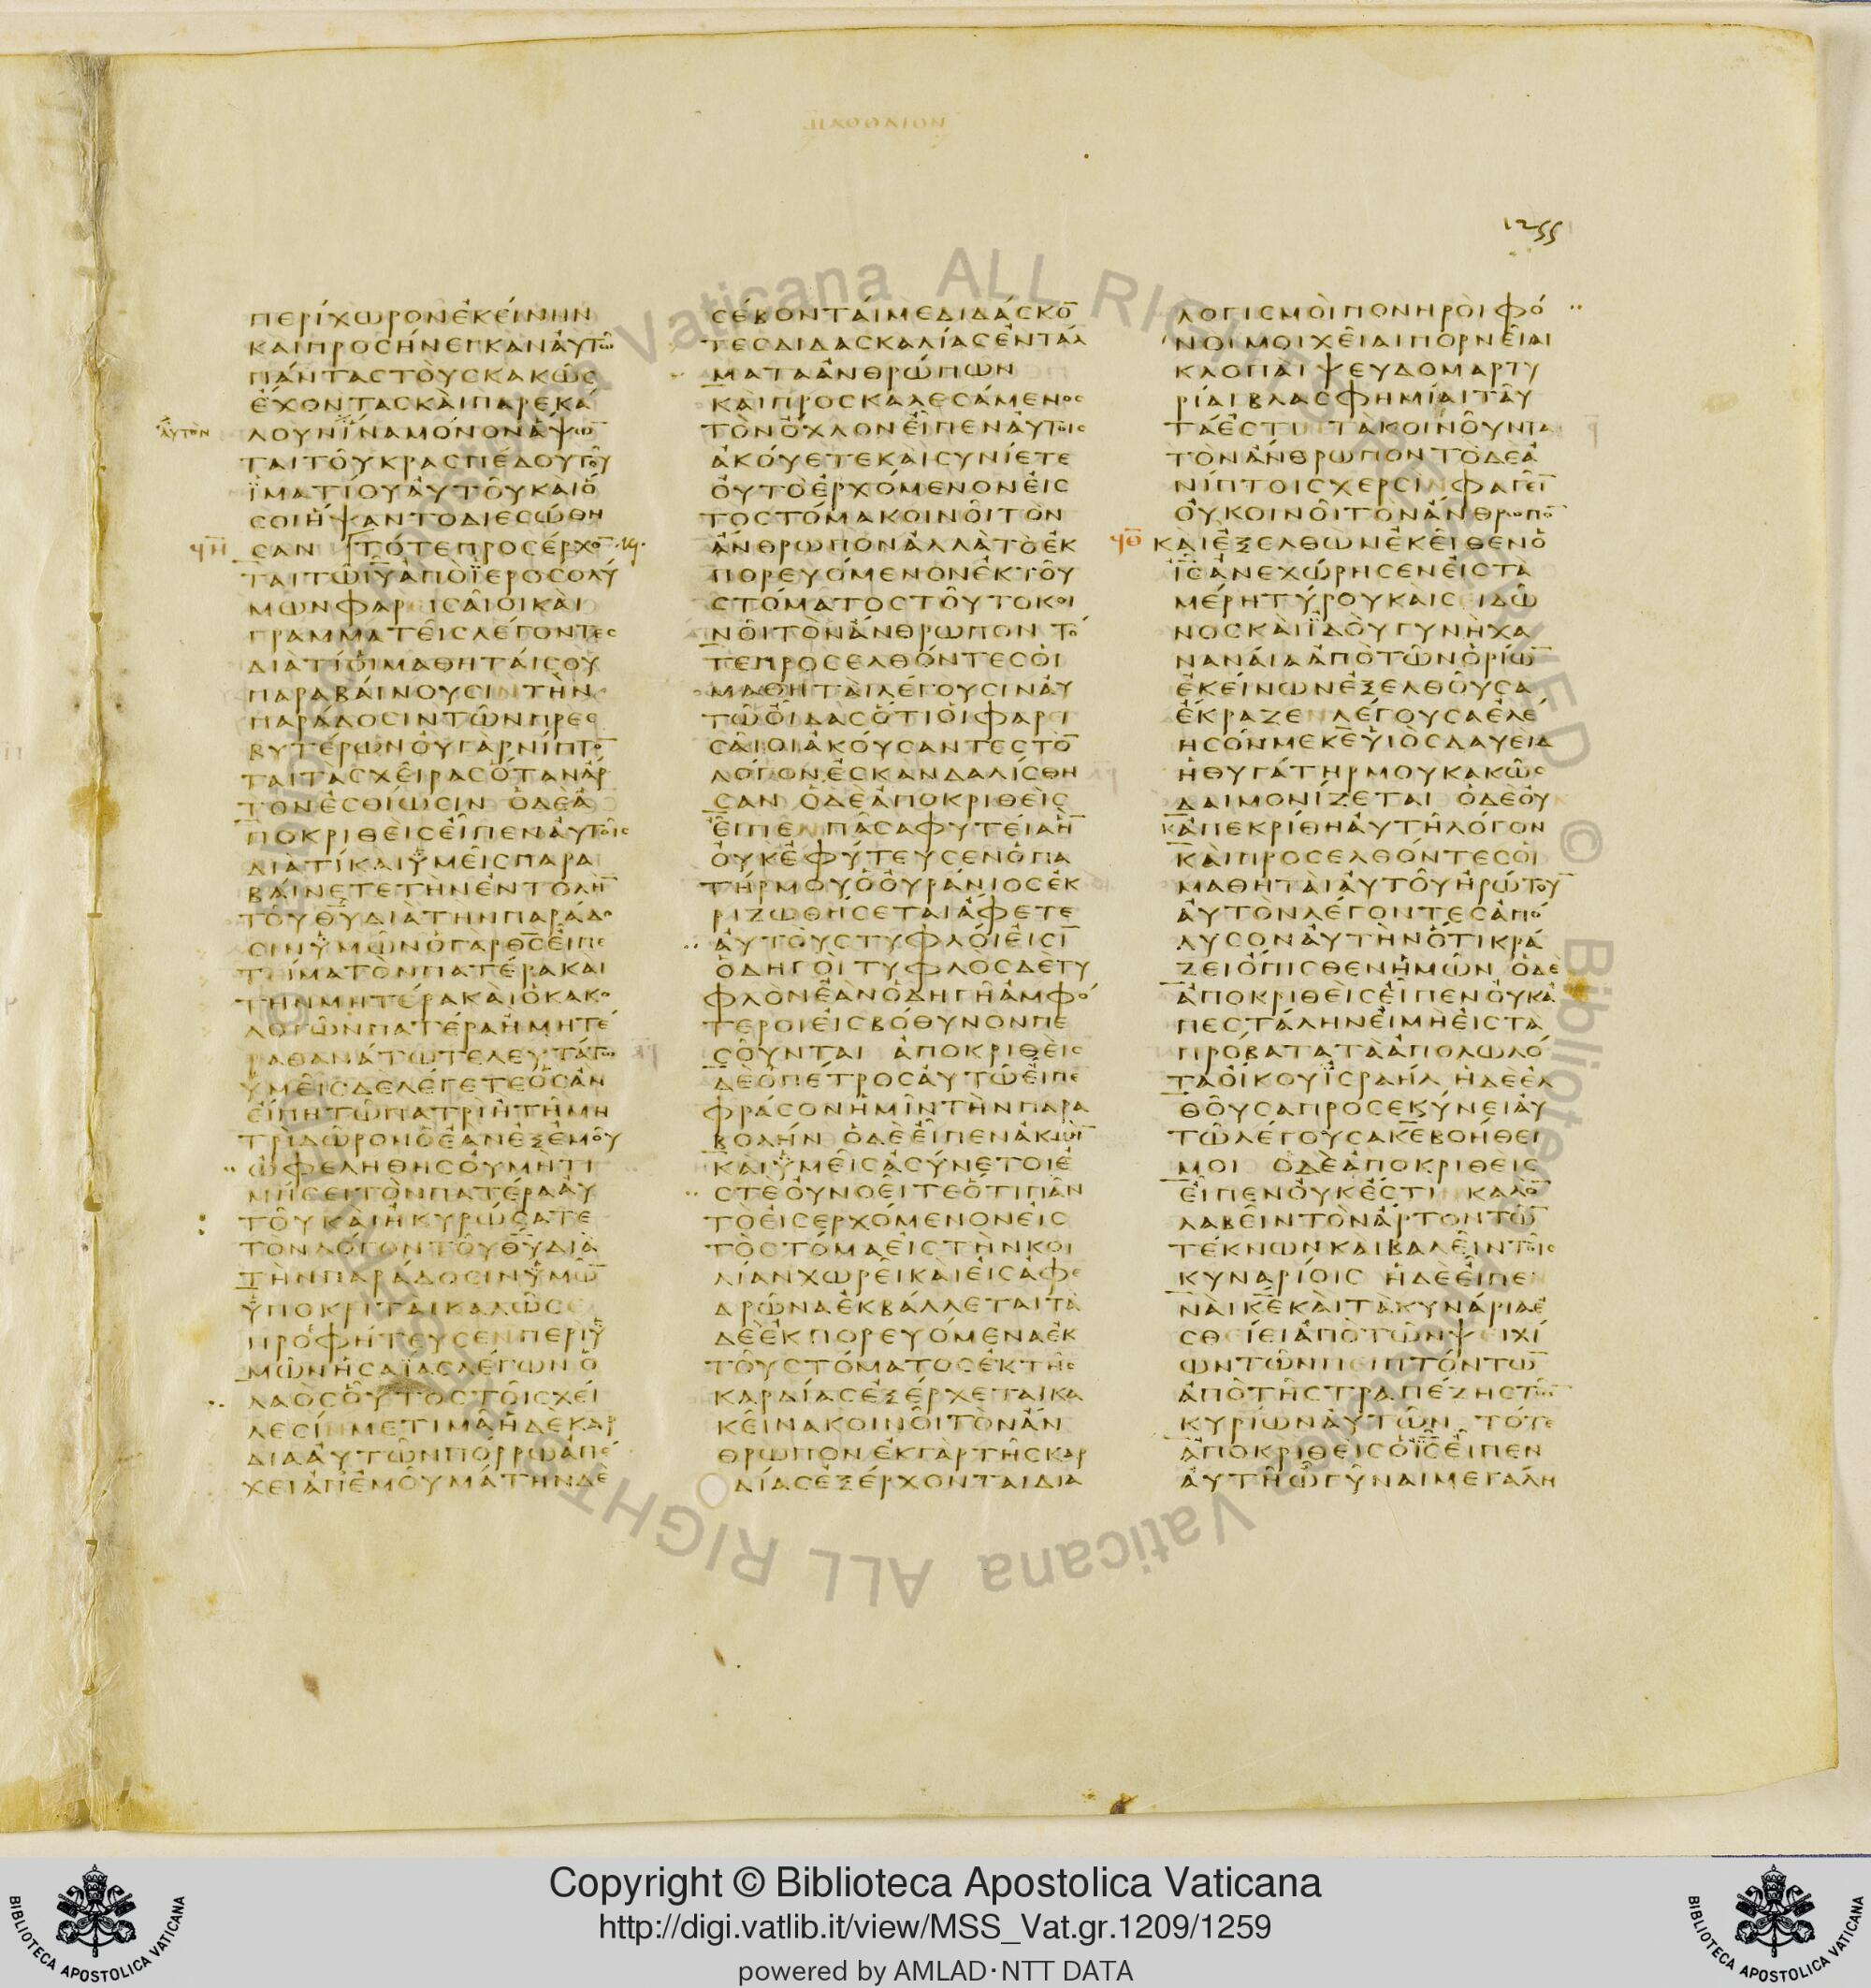 1255
ΠΕΡΙΧΩΡΟΝΕΚΕΙΝΗΝ
ΚΑΙΠΡΟΣΗΝΕΓΚΑΝΑΥΤΩ
ΠΑΝΤΑΣΤΟΥΣΚΑΚΩΣ
ΕΧΟΝΤΑΣΚΑΙΠΑΡΕΚΑ
αυτον ΛΟΥΝΪΝΑΜΟΝΟΝΑΨΩ̅
ΤΑΙΤΟΥΚΡΑΣΠΕΔΟΥΤΟΥ
ΪΜΑΤΙΟΥΑΥΤΟΥΚΑΙΟ
ΣΟΙΗΨΑΝΤΟΔΙΕΣΩΘΗ
ϟΗ ΣΑΝ ΤΟΤΕΠΡΟΣΕΡΧΟ̅
ΤΑΙΤΩΙ̅Υ̅ΑΠΟΪΕΡΟΣΟΛΥ
ΜΩΝΦΑΡΕΙΣΑΙΟΙΚΑΙ
ΓΡΑΜΜΑΤΕΙΣΛΕΓΟΝΤΕΣ
ΔΙΑΤΙΟΙΜΑΘΗΤΑΙΣΟΥ
ΠΑΡΑΒΑΙΝΟΥΣΙΝΤΗΝ
ΠΑΡΑΔΟΣΙΝΤΩΝΠΡΕΣ
ΒΥΤΕΡΩΝΟΥΓΑΡΝΙΠΤΟ̅
ΤΑΙΤΑΣΧΕΙΡΑΣΟΤΑΝΑΡ
ΤΟΝΕΣΘΙΩΣΙΝ ΟΔΕΑ
ΠΟΚΡΙΘΕΙΣΕΙΠΕΝΑΥΤΟΙΣ
ΔΙΑΤΙΚΑΙΫΜΕΙΣΠΑΡΑ
ΒΑΙΝΕΤΕΤΗΝΕΝΤΟΛΗ̅
ΤΟΥΘ̅Υ̅ΔΙΑΤΗΝΠΑΡΑΔΟ
ΣΙΝΫΜΩΝΟΓΑΡΘ̅Σ̅ΕΙΠΕ
ΤΕΙΜΑΤΟΝΠΑΤΕΡΑΚΑΙ
ΤΗΝΜΗΤΕΡΑΚΑΙΟΚΑΚΟ
ΛΟΓΩΝΠΑΤΕΡΑΗΜΗΤΕ
ΡΑΘΑΝΑΤΩΤΕΛΕΥΤΑΤΩ
ΫΜΕΙΣΔΕΛΕΓΕΤΕΟΣΑΝ
ΕΙΠΗΤΩΠΑΤΡΙΗΤΗΜΗ
ΤΡΙΔΩΡΟΝΟΕΑΝΕΞΕΜΟΥ
ΩΦΕΛΗΘΗΣΟΥΜΗΤΙ
ΜΗΣΕΙΤΟΝΠΑΤΕΡΑΑΥ
ΤΟΥΚΑΙΗΚΥΡΩΣΑΤΕ
ΤΟΝΛΟΓΟΝΤΟΥΘ̅Υ̅ΔΙΑ
ΤΗΝΠΑΡΑΔΟΣΙΝΫΜΩ̅
ΫΠΟΚΡΙΤΑΙΚΑΛΩΣΕ
ΠΡΟΦΗΤΕΥΣΕΝΠΕΡΙΫ
ΜΩΝΗΣΑΪΑΣΛΕΓΩΝΟ
ΛΑΟΣΟΥΤΟΣΤΟΙΣΧΕΙ
ΛΕΣΙΝΜΕΤΙΜΑΗΔΕΚΑΡ
ΔΙΑΑΥΤΩΝΠΟΡΡΩΑΠΕ
ΧΕΙΑΠΕΜΟΥΜΑΤΗΝΔΕ
ΣΕΒΟΝΤΑΙΜΕΔΙΔΑΣΚΟ̅
ΤΕΣΔΙΔΑΣΚΑΛΙΑΣΕΝΤΑΛ
ΜΑΤΑΑΝΘΡΩΠΩΝ
ΚΑΙΠΡΟΣΚΑΛΕΣΑΜΕΝΟΣ
ΤΟΝΟΧΛΟΝΕΙΠΕΝΑΥΤΟΙΣ
ΑΚΟΥΕΤΕΚΑΙΣΥΝΙΕΤΕ
ΟΥΤΟΕΡΧΟΜΕΝΟΝΕΙΣ
ΤΟΣΤΟΜΑΚΟΙΝΟΙΤΟΝ
ΑΝΘΡΩΠΟΝΑΛΛΑΤΟΕΚ
ΠΟΡΕΥΟΜΕΝΟΝΕΚΤΟΥ
ΣΤΟΜΑΤΟΣΤΟΥΤΟΚΟΙ
ΝΟΙΤΟΝΑΝΘΡΩΠΟΝ ΤΟ
ΤΕΠΡΟΣΕΛΘΟΝΤΕΣΟΙ
ΜΑΘΗΤΑΙΛΕΓΟΥΣΙΝΑΥ
ΤΩΟΙΔΑΣΟΤΙΟΙΦΑΡΕΙ
ΣΑΙΟΙΑΚΟΥΣΑΝΤΕΣΤΟ̅
ΛΟΓΟΝΕΣΚΑΝΔΑΛΙΣΘΗ
ΣΑΝ ΟΔΕΑΠΟΚΡΙΘΕΙΣ
ΕΙΠΕΝΠΑΣΑΦΥΤΕΙΑΗ̅
ΟΥΚΕΦΥΤΕΥΣΕΝΟΠΑ
ΤΗΡΜΟΥΟΟΥΡΑΝΙΟΣΕΚ
ΡΙΖΩΘΗΣΕΤΑΙΑΦΕΤΕ
ΑΥΤΟΥΣΤΥΦΛΟΙΕΙΣΙ̅
ΟΔΗΓΟΙΤΥΦΛΟΣΔΕΤΥ
ΦΛΟΝΕΑΝΟΔΗΓΗΑΜΦΟ
ΤΕΡΟΙΕΙΣΒΟΘΥΝΟΝΠΕ
ΣΟΥΝΤΑΙ ΑΠΟΚΡΙΘΕΙΣ
ΔΕΟΠΕΤΡΟΣΑΥΤΩΕΙΠΕ
ΦΡΑΣΟΝΗΜΙΝΤΗΝΠΑΡΑ
ΒΟΛΗΝ ΟΔΕΕΙΠΕΝΑΚΜΗ̅
ΚΑΙΫΜΕΙΣΑΣΥΝΕΤΟΙΕ
ΣΤΕΟΥΝΟΕΙΤΕΟΤΙΠΑΝ
ΤΟΕΙΣΕΡΧΟΜΕΝΟΝΕΙΣ
ΤΟΣΤΟΜΑΕΙΣΤΗΝΚΟΙ
ΛΙΑΝΧΩΡΕΙΚΑΙΕΙΣΑΦΕ
ΔΡΩΝΑΕΚΒΑΛΛΕΤΑΙΤΑ
ΔΕΕΚΠΟΡΕΥΟΜΕΝΑΕΚ
ΤΟΥΣΤΟΜΑΤΟΣΕΚΤΗΣ
ΚΑΡΔΙΑΣΕΞΕΡΧΕΤΑΙΚΑ
ΚΕΙΝΑΚΟΙΝΟΙΤΟΝΑΝ
ΘΡΩΠΟΝΕΚΓΑΡΤΗΣΚΑΡ
ΔΙΑΣΕΞΕΡΧΟΝΤΑΙΔΙΑ
ΛΟΓΙΣΜΟΙΠΟΝΗΡΟΙΦΟ
ΝΟΙΜΟΙΧΕΙΑΙΠΟΡΝΕΙΑΙ
ΚΛΟΠΑΙΨΕΥΔΟΜΑΡΤΥ
ΡΙΑΙΒΛΑΣΦΗΜΙΑΙΤΑΥ
ΤΑΕΣΤΙΝΤΑΚΟΙΝΟΥΝΤΑ
ΤΟΝΑΝΘΡΩΠΟΝΤΟΔΕΑ
ΝΙΠΤΟΙΣΧΕΡΣΙΝΦΑΓΕΙ̅
ΟΥΚΟΙΝΟΙΤΟΝΑΝΘΡΩΠΟ̅
ϟΘ ΚΑΙΕΞΕΛΘΩΝΕΚΕΙΘΕΝΟ
Ι̅Σ̅ΑΝΕΧΩΡΗΣΕΝΕΙΣΤΑ
ΜΕΡΗΤΥΡΟΥΚΑΙΣΕΙΔΩ
ΝΟΣΚΑΙΪΔΟΥΓΥΝΗΧΑ
ΝΑΝΑΙΑΑΠΟΤΩΝΟΡΙΩ̅
ΕΚΕΙΝΩΝΕΞΕΛΘΟΥΣΑ
ΕΚΡΑΖΕΝΛΕΓΟΥΣΑΕΛΕ
ΗΣΟΝΜΕΚ̅Ε̅ΫΙΟΣΔΑΥΕΙΔ
ΗΘΥΓΑΤΗΡΜΟΥΚΑΚΩΣ
ΔΑΙΜΟΝΙΖΕΤΑΙ ΟΔΕΟΥ
ΚΑΠΕΚΡΙΘΗΑΥΤΗΛΟΓΟΝ
ΚΑΙΠΡΟΣΕΛΘΟΝΤΕΣΟΙ
ΜΑΘΗΤΑΙΑΥΤΟΥΗΡΩΤΟΥ̅
ΑΥΤΟΝΛΕΓΟΝΤΕΣΑΠΟ
ΛΥΣΟΝΑΥΤΗΝΟΤΙΚΡΑ
ΖΕΙΟΠΙΣΘΕΝΗΜΩΝ ΟΔΕ
ΑΠΟΚΡΙΘΕΙΣΕΙΠΕΝΟΥΚΑ
ΠΕΣΤΑΛΗΝΕΙΜΗΕΙΣΤΑ
ΠΡΟΒΑΤΑΤΑΑΠΟΛΩΛΟ
ΤΑΟΙΚΟΥΪΣΡΑΗΛ ΗΔΕΕΛ
ΘΟΥΣΑΠΡΟΣΕΚΥΝΕΙΑΥ
ΤΩΛΕΓΟΥΣΑΚ̅Ε̅ΒΟΗΘΕΙ
ΜΟΙ ΟΔΕΑΠΟΚΡΙΘΕΙΣ
ΕΙΠΕΝΟΥΚΕΣΤΙΝΚΑΛΟ̅
ΛΑΒΕΙΝΤΟΝΑΡΤΟΝΤΩ̅
ΤΕΚΝΩΝΚΑΙΒΑΛΕΙΝΤΟΙΣ
ΚΥΝΑΡΙΟΙΣ ΗΔΕΕΙΠΕΝ
ΝΑΙΚ̅Ε̅ΚΑΙΤΑΚΥΝΑΡΙΑΕ
ΣΘΕΙΕΙΑΠΟΤΩΝΨΕΙΧΙ
ΩΝΤΩΝΠΕΙΠΤΟΝΤΩ̅
ΑΠΟΤΗΣΤΡΑΠΕΖΗΣΤΩ̅
ΚΥΡΙΩΝΑΥΤΩΝ ΤΟΤΕ
ΑΠΟΚΡΙΘΕΙΣΟΙ̅Σ̅ΕΙΠΕΝ
ΑΥΤΗΩΓΥΝΑΙΜΕΓΑΛΗ
Copyright © Biblioteca Apostolica Vaticana
http://digi.vatlib.it/view/MSS_Vat.gr.1209/1259
powered by AMLAD·NTT DATA
BIBLIOTECA APOSTOLICA VATICANA
BIBLIOTECA APOSTOLICA VATICANA